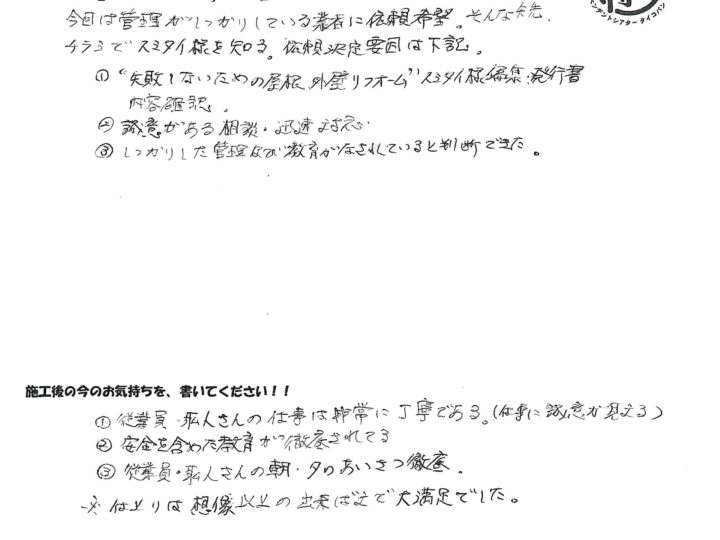 今回は管理がしっかりしている業者に依頼希望。そんな矢先、
チラシでスミタイ様を知る。依頼決定要因は下記。
① "失敗しないための屋根、外壁リフォーム" スミタイ様編集・発行書
内容確認。
② 誠意がある相談・迅速対応
③ しっかりした管理及び教育がなされていると判断できた。
ペンデントシアタータイコバン
施工後の今のお気持ちを、書いてください!!
① 従業員・職人さんの仕事は非常に丁寧である。(仕事に誠意が見える)
② 安全を含めた教育が徹底されてる
③ 従業員・職人さんの朝・夕のあいさつ徹底.
※ 仕上りは想像以上の出来ばえで大満足でした。